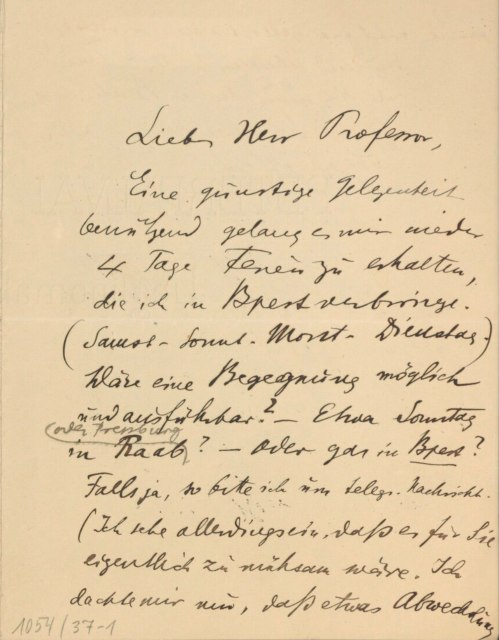 Lieber Herr Professor,
Eine günstige Gelegenheit
benützend gelang es mir wieder
4 Tage Ferien zu erhalten,
die ich in Bpest verbringe.
(Samst- Sonnt- Mont- Dienstag)
Wäre eine Begegnung möglich
und ausführbar? – Etwa Sonntag
(oder Pressburg)
in Raab? – oder gar in Bpest?
Falls ja, so bitte ich um telegr. Nachricht.
(Ich sehe allerdings ein, daß es für Sie
eigentlich zu mühsam wäre. Ich
dachte mir nur, daß etwas Abwechslung
1054/37-1